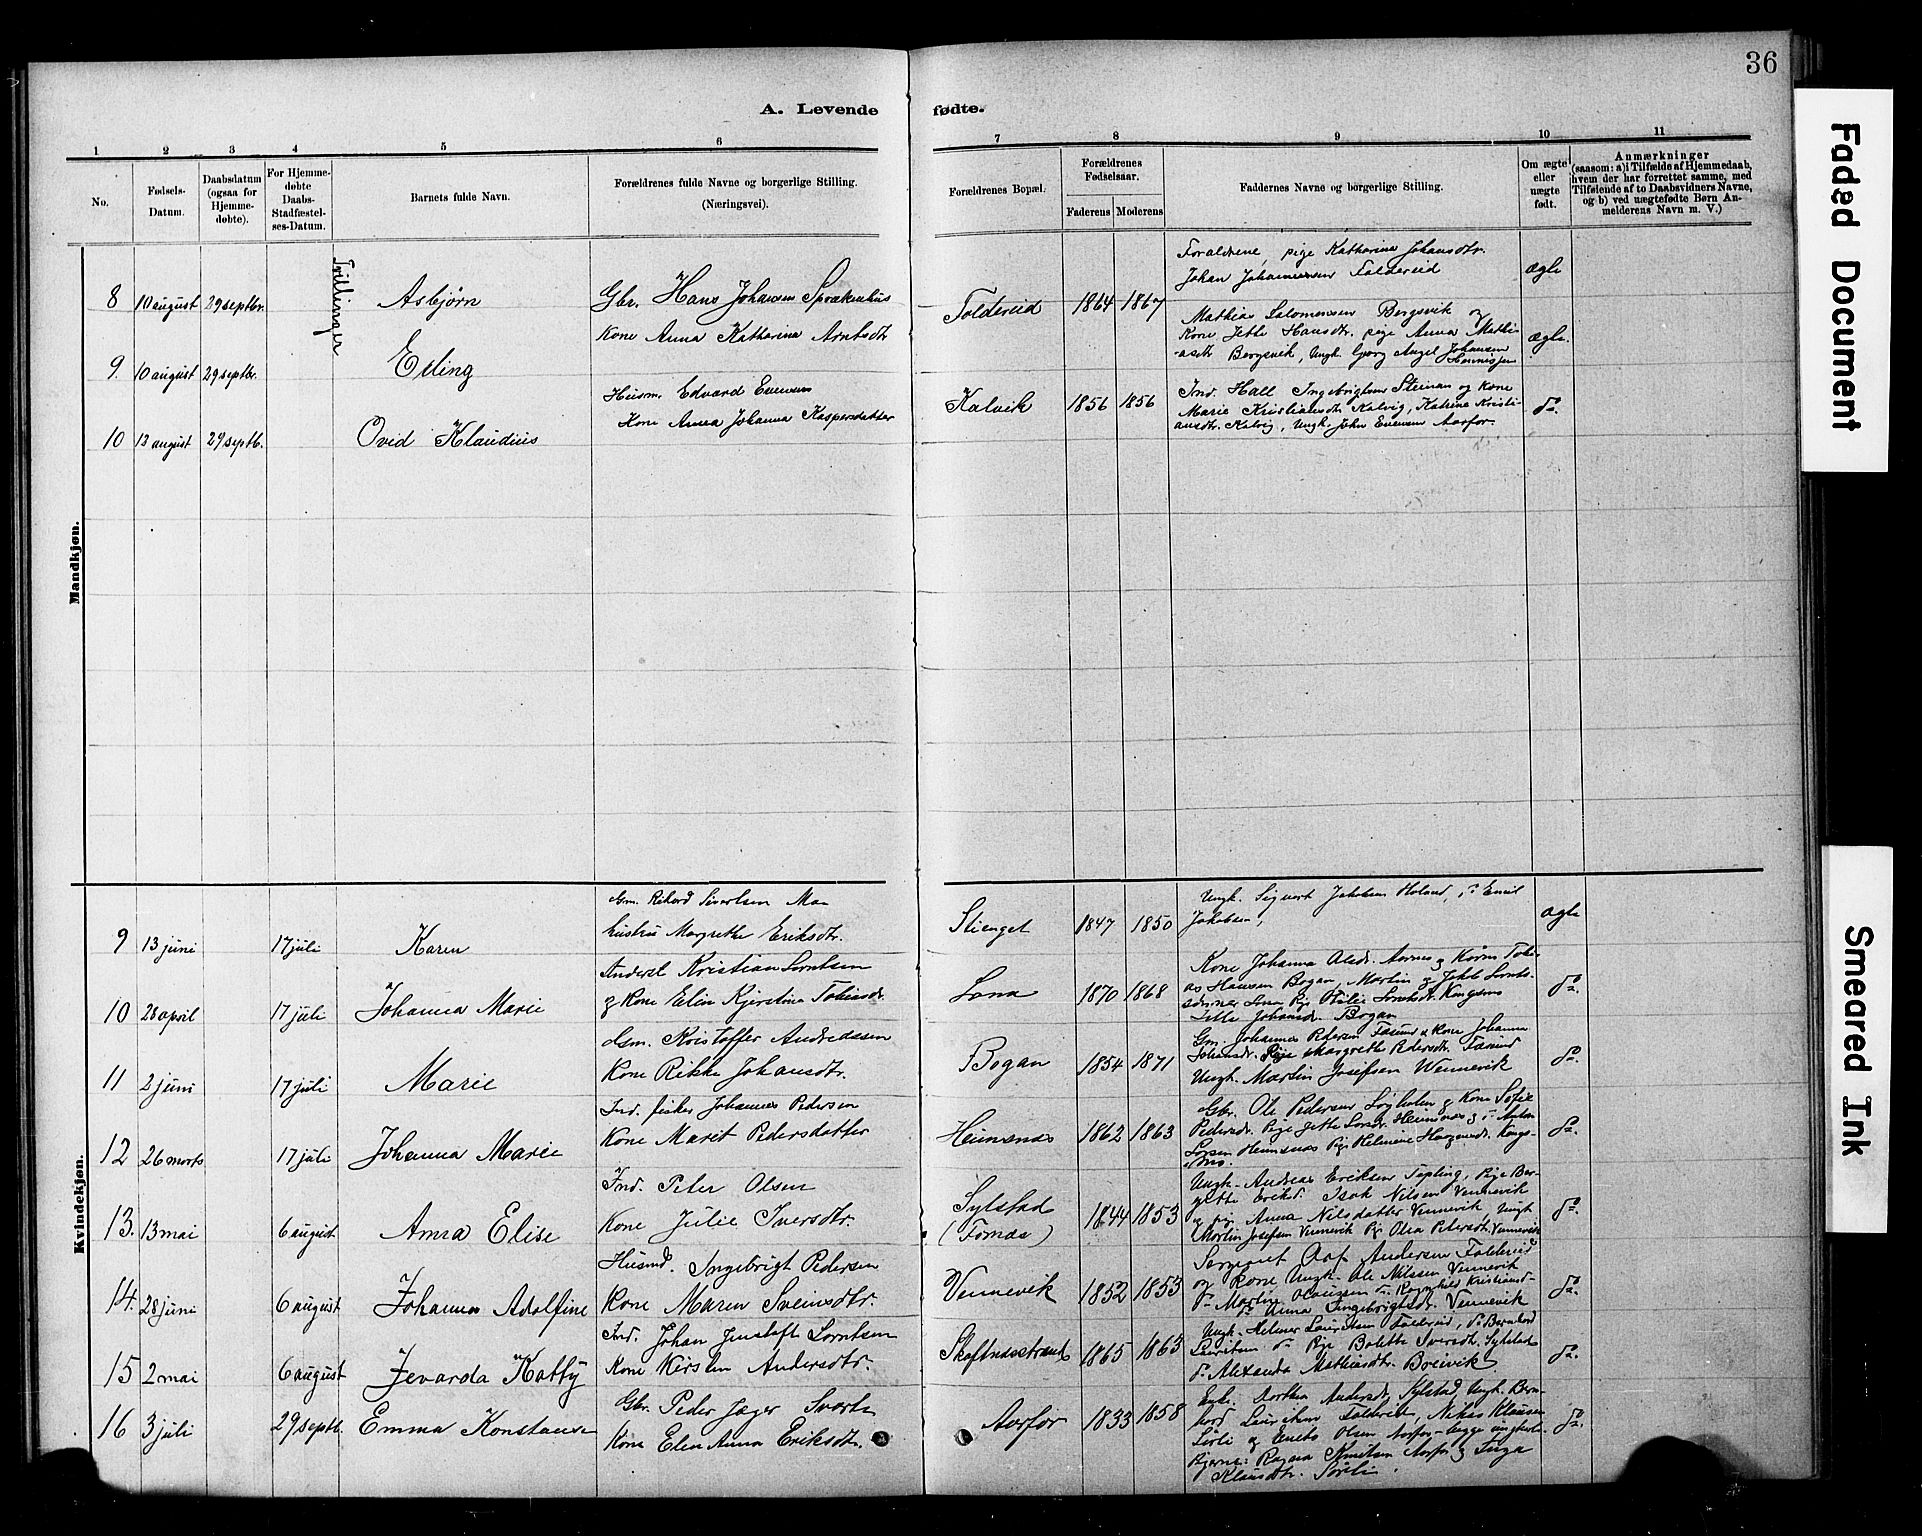 36
A. Levende fødte.
1 2 3 4 5 6 7 8 9 10 11
No.
Fødsels-Datum.
Daabsdatum (ogsaa for Hjemmedøbte).
For Hjemmedøbte Daabs-Stadfæstelses-Datum.
Barnets fulde Navn.
Forældrenes fulde Navne og borgerlige Stilling.
(Næringsvei).
Forældrenes Bopæl.
Forældrenes Fødselsaar.
Faderens Moderens
Faddernes Navne og borgerlige Stilling.
Om ægte eller uægte født.
Anmærkninger
(saasom: a) i Tilfælde af Hjemmedaab, hvem der har forrettet samme, med Tilføiende af to Daabsvidners Navne, og b) ved uægtefødte Børn Anmelderens Navn m. V.)
Mandkjøn.
Tvillinger
8 10 august 29 septbr. Asbjørn
Gbr. Hans Johansen
Kone Anna Katharina Arntsdtr
Foldereid 1864 1867
Forældrene, pige Katharina Johansdtr.
Johan Johannesen Foldereid
ægte
9. 10 august 29 septbr. Erling
Mathias Salomonsen Bergsvik og
Kone Jette Hansdtr. pige Anna Mathi-
asdtr Bergsvik, Ungk. Georg Angel Johansen
ægte.
10 13 august 29 septb. Ovid Klaudius
Husm. Edvard Evensen
Kone Anna Johanna Kaspersdatter
Kalvik 1856 1856
Ind. Hall Ingebrigtsen Steinan og Kone
Marie Kristiansdtr Kalvig, Katrine Kristi-
ansdtr. Kalvig, Ungk. John Evensen Aarfor.
do.
Kvindekjøn.
9 13 juni 17 juli Karen
Gm. Rikard Sivertsen Mo
hustru Margrethe Eriksdtr.
1847 1850
Ungk. Sigvart Jakobsen Holand, do Emil
Jakobsen,
ægte
10 28 april 17 juli Johanna Marie
Kristian Lorntsen
og Kone Elin Kjerstina Tobiasdr.
1870 1868
Kone Johanna Olsdr. Aarnes og Karen Tobi-
as Hansen Bogan, Martin og
Pige Otilie Lorntsdr. Kongsmo
Jette Johansdr. Bogan
do.
11 2 juni 17 juli Marie
Kristoffer Andreassen
Kone Rikke Johansdtr.
Bogan 1854 1871
Gm. Johannes Pedersen og Kone Johanna
Johansdr. Pige Margrethe Pedersdtr.
Ungk. Martin Josefsen Vennevik
do.
12 26 marts 17 juli Johanna Marie
Ind. fisker Johannes Pedersen
Kone Marit Pedersdatter
Heimsnæs 1862 1863
Gbr. Ole Pedersen og Kone Sofie
Pedersdr. Pige Jette Heimsnæs og do Anton
Heimsnæs Pige Helmine Kongs-
mo.
do.
13. 13 mai 6 august Anna Elise
Ind. Peter Olsen
Kone Julie Iversdtr.
Sylstad
(Fornæs)
1844 1853
Ungk. Andreas Eriksen Tepling, Pige Ber-
gitte Eriksd. Isak Nilsen Vennevik
og pige Anna Nilsdatter Vennevik Ungk
Martin Josefsen Vennevik Pige Olea Petersdtr. Vennevik
do.
14. 28 juni 6 august Johanna Adolfine
Husmd. Ingebrigt Pedersen
Kone Maren Sveinsdtr.
Vennevik 1852 1853
Sergeant Andersen Foldereid
og Kone Ungk. Ole Nilssen Vennevik
do Martin Olaussen do Ragnhild
do Anna Ingebrigtsdr. Vennevik
do.
15 2 mai 6 august Jevarda Katty
Ind. Johan Lorntsen
Kone Kirsten Andersdtr.
Skaftnæsstrand 1865 1863
Ungk. Helmer Lauritsen Foldereid, do Bernhard
Lauritsen do Pige Bolette Iversdtr. Sylstad
do Alexandra Mathiasdtr. Breivik
do.
16 3 juli 29 septb. Emma Konstanse
Gbr. Peder Jæger
Kone Elen Anna Eriksdtr.
Aarfor 1833 1858
Enke Andersdr. Sylstad, Ungk. Bern-
hard Lauritsen Foldereid, Klausen
og Olsen Aarfor - begge ungkarle
Ragna Knutsen Aarfor og Inga
Klausdtr.
do.
Faded Document
Smeared Ink